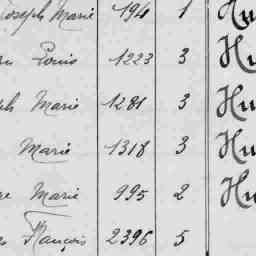 Joseph Marie 194 1 Hu
Louis 1223 3 Hu
ph Marie 1281 3 Hu
Marie 1318 3 Hu
re Marie 995 2 Hu
François 2396 5